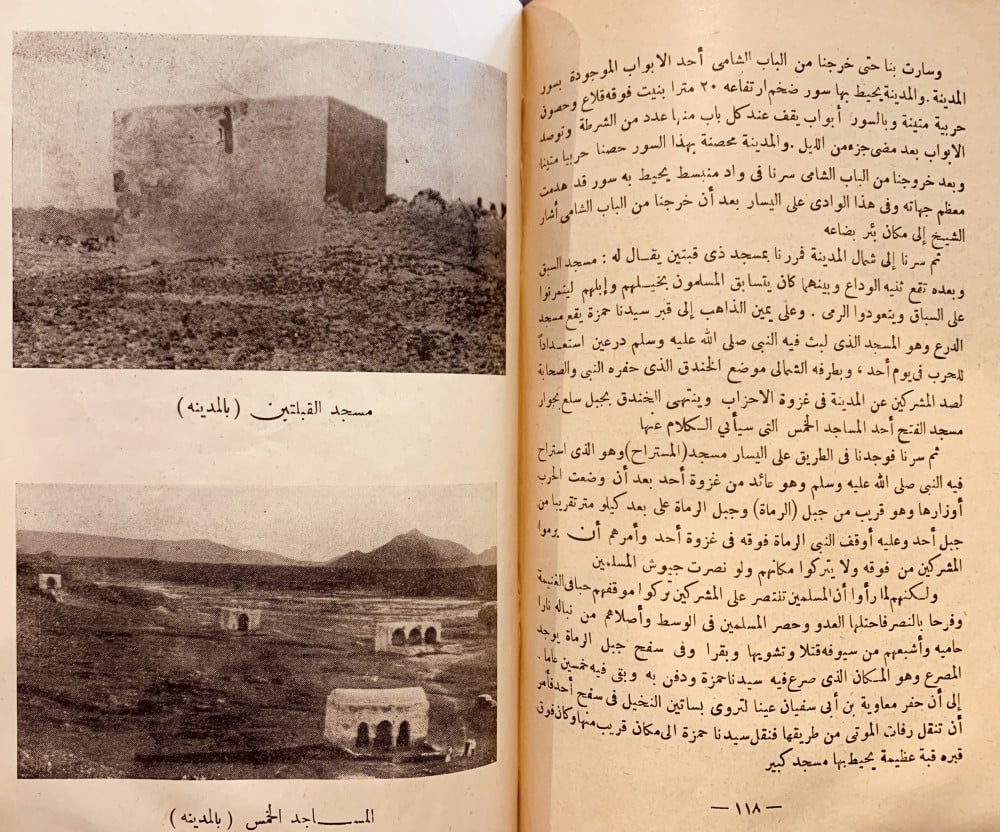 وسارت بنا حتى خرجنا من الباب الشامى أحد الابواب الموجودة بسور
المدينة . والمدينة يحيط بها سور ضخم ارتفاعه ٢٠ مترا بنيت فوقه قلاع وحصون
حربية متينة وبالسور أبواب يقف عند كل باب منها عدد من الشرطة وتوصد
الابواب بعد مضى جزء من الليل . والمدينة محصنة بهذا السور حصنا حربيا متينا
وبعد خروجنا من الباب الشامى سرنا فى واد منبسط يحيط به سور قد هدمت
معظم جهاته وفى هذا الوادى على اليسار بعد أن خرجنا من الباب الشامى أشار
الشيخ إلى مكان بئر بضاعه
ثم سرنا إلى شمال المدينة فمررنا بمسجد ذى قبتين يقال له : مسجد السبق
وبعده تقع ثنيه الوداع وبينهما كان يتسابق المسلمون بخيلهم وإبلهم ليتمرنوا
على السباق ويتعودوا الرمى . وعلى يمين الذاهب إلى قبر سيدنا حمزة يقع مسجد
الدرع وهو المسجد الذى لبث فيه النبى صلى الله عليه وسلم درعين استعداداً
للحرب فى يوم أحد ، وبطرفه الشمالى موضع الخندق الذى حفره النبى والصحابة
لصد المشركين عن المدينة فى غزوة الاحزاب وينتهى الخندق بجبل سلع بجوار
مسجد الفتح أحد المساجد الخمس التى سيأتى الكلام عنها
ثم سرنا فوجدنا فى الطريق على اليسار مسجد (المستراح) وهو الذى استراح
فيه النبى صلى الله عليه وسلم وهو عائد من غزوة أحد بعد أن وضعت الحرب
أوزارها وهو قريب من جبل (الرماة) وجبل الرماة على بعد كيلو متر تقريبا من
جبل أحد وعليه أوقف النبى الرماة فوقه فى غزوة أحد وأمرهم أن يرموا
المشركين من فوقه ولا يتركوا مكانهم ولو نصرت جيوش المسلمين
ولكنهم لما رأوا أن المسلمين تنتصر على المشركين تركوا موقفهم حبا فى الغنيمة
وفرحا بالنصر فاحتلها العدو وحصر المسلمين فى الوسط وأصلاهم من نباله نارا
حاميه وأشبعهم من سيوفه قتلا وتشويها وبقرا وفى سفح جبل الرماة يوجد
المصرع وهو المكان الذى صرع فيه سيدنا حمزة ودفن به وبقى فيه خمسين عاما .
إلى أن حفر معاوية بن أبى سفيان عينا لتروى بساتين النخيل فى سفح أحد فأمر
أن تنقل رفات الموتى من طريقها فنقل سيدنا حمزة الى مكان قريب منها وكان فوق
قبره قبة عظيمة يحيط بها مسجد كبير
— ١١٨ —
مسجد القبلتين (بالمدينه)
المساجد الخمس (بالمدينه)